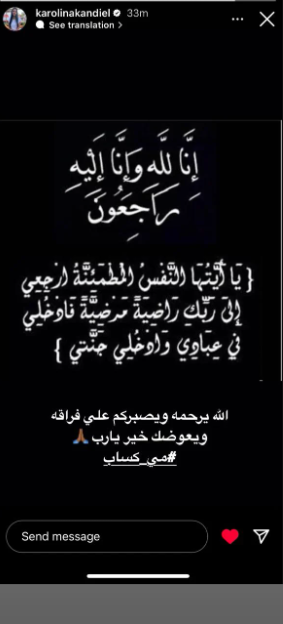 karolinakandiel 33m
See translation >
إِنَّا لِلَّهِ وَإِنَّا إِلَيْهِ
رَاجِعُونَ
{ يَا أَيَّتُهَا النَّفْسُ الْمُطْمَئِنَّةُ ارْجِعِي
إِلَى رَبِّكِ رَاضِيَةً مَرْضِيَّةً فَادْخُلِي
فِي عِبَادِي وَادْخُلِي جَنَّتِي }
الله يرحمه ويصبركم علي فراقه
ويعوضك خير يارب🙏🏾
#مي_كساب
Send message